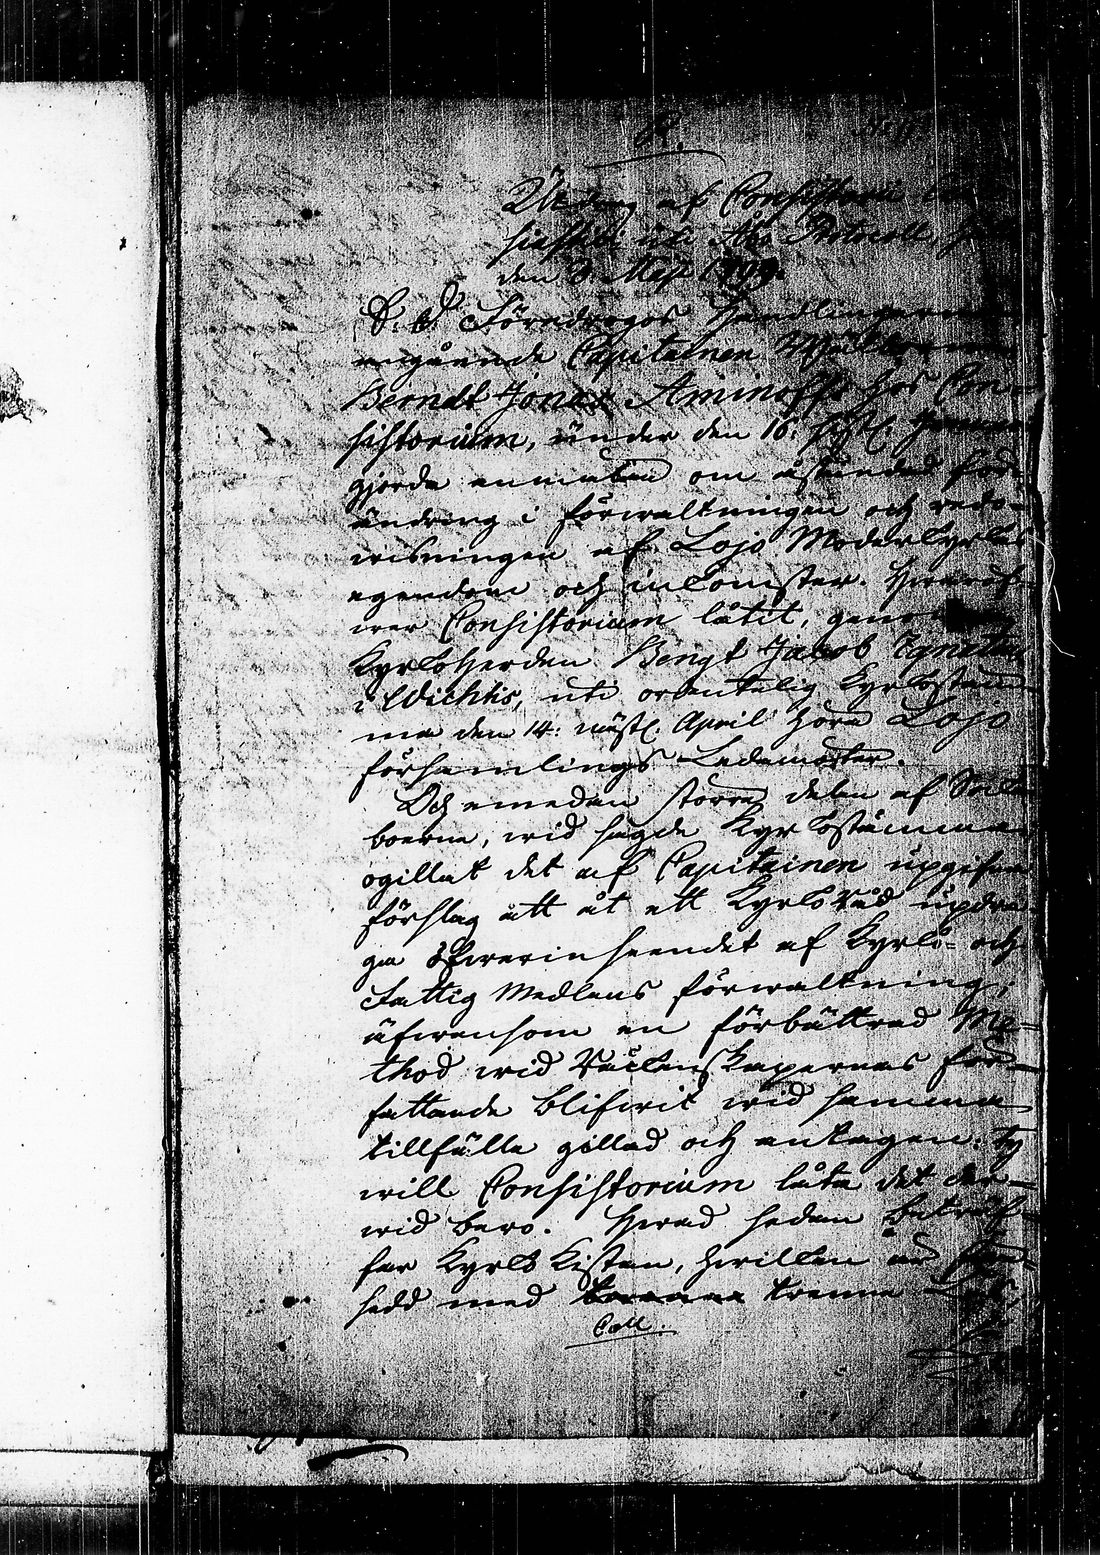 R.
Utdrag af Consistorii
siastici uti Åbo Protocoll,
den 8 Maji
S. D. Föredrogos Handlingarne
angående Capitainen Wälborne
Berndt Jonas Aminoffs hos Con-
sistorium, under den 16: sistl.
gjorda anmälan om åstundad för-
ändring i förwaltningen och redo-
wisningen af Lojo Moderkyrkas
egendom och inkomster. Häröf-
wer Consistorium låtit, genom
Kyrkoherden Bengt Jacob Ignatius
i Wichtis, uti ordentelig Kyrkostäm-
ma den 14: näst. April höra Lojo
församlings Ledamöter.
Och emedan större delen af
boerne, wid sagde Kyrkostämma
ogillat det af Capitainen upgifna
förslag att åt ett Kyrko Råd updra-
ga öfwerinseendet af Kyrko- och
Fattig Medlens förwaltning;
äfwensom en förbättrad Me-
thod wid Räkenskapernas för-
fattande blifwit wid samma
tillfälle gillad och antagen. Ty
will Consistorium låta det der-
wid bero. Hwad sedan beträf-
far Kyrko Kistan, hwilken är
sedd med trenne
Coll.